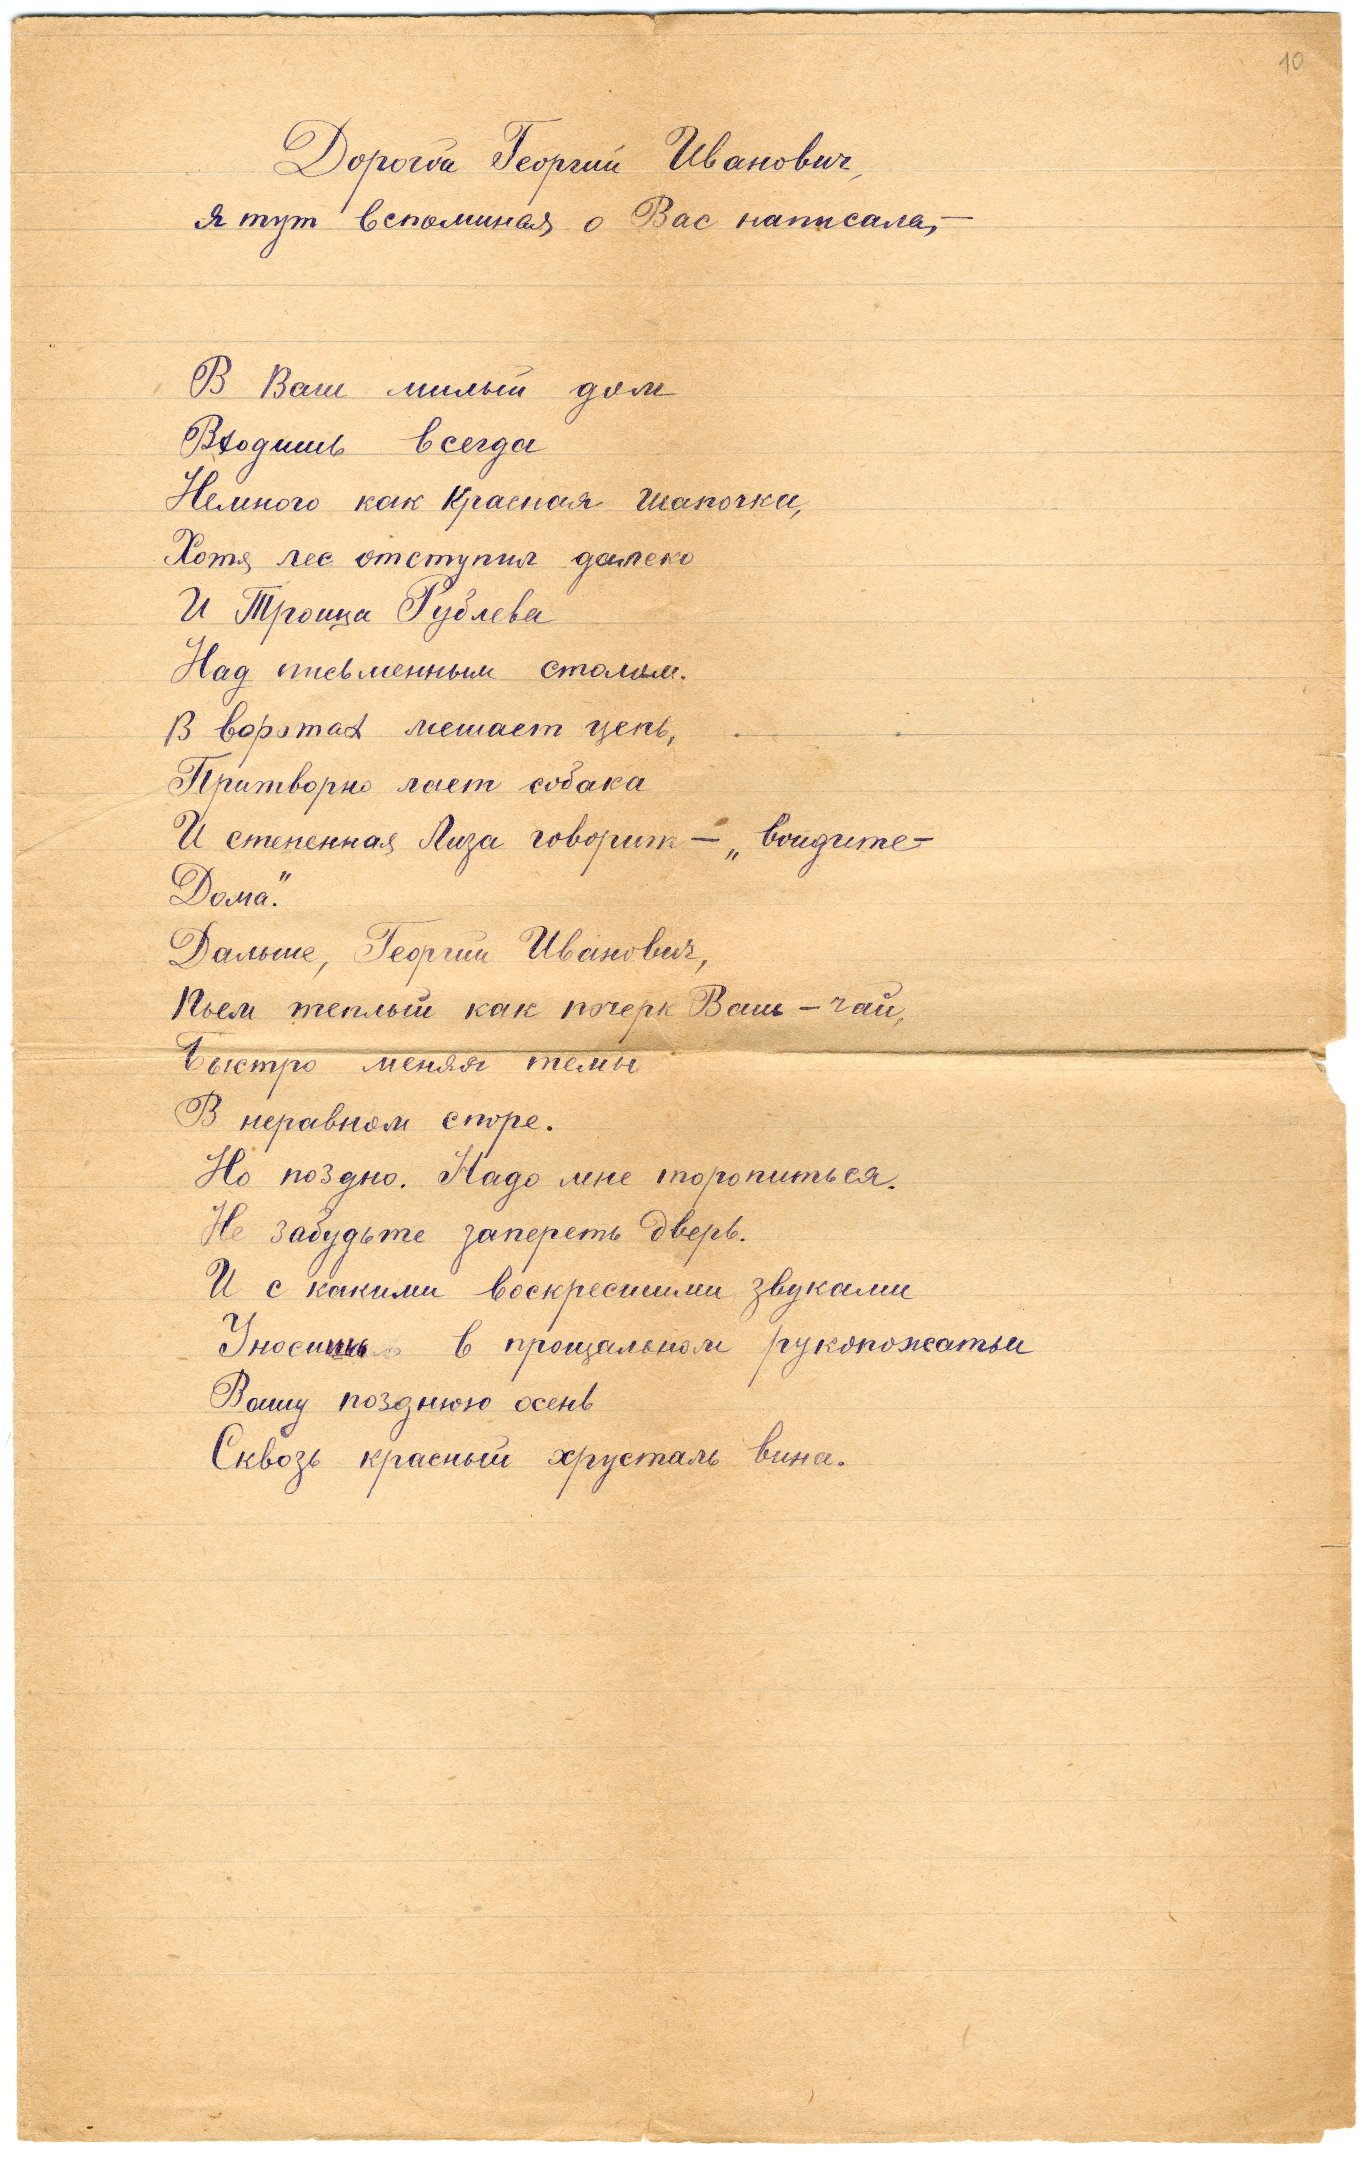 10
Дорогой Георгий Иванович,
я тут вспоминая о Вас написала, —
В Ваш милый дом
Входишь всегда
Немного как Красная Шапочка,
Хотя лес отступил далеко
И Троица Рублева
Над письменным столом.
В воротах мешает цепь,
Притворно лает собака
И степенная Лиза говорит — „войдите —
Дома."
Дальше, Георгий Иванович,
Пьем теплый как почерк Ваш — чай,
Быстро меняя темы
В неравном споре.
Но поздно. Надо мне торопиться.
Не забудьте запереть дверь.
И с какими воскресшими звуками
Уносишь в прощальном рукопожатьи
Вашу позднюю осень
Сквозь красный хрусталь вина.